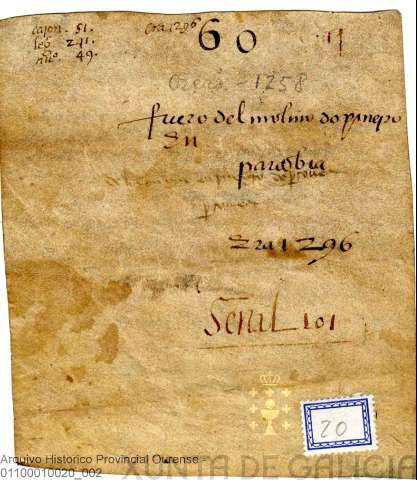 cajon. 51.
leg. 241.
nº 49.
era 1296
60
11
Orero - 1258
fuero del molino do pineyro
En
paradbia
Era 1296
Señal 101
20
Arquivo Historico Provincial Ourense -
01100010020_002
XUNTA DE GALICIA